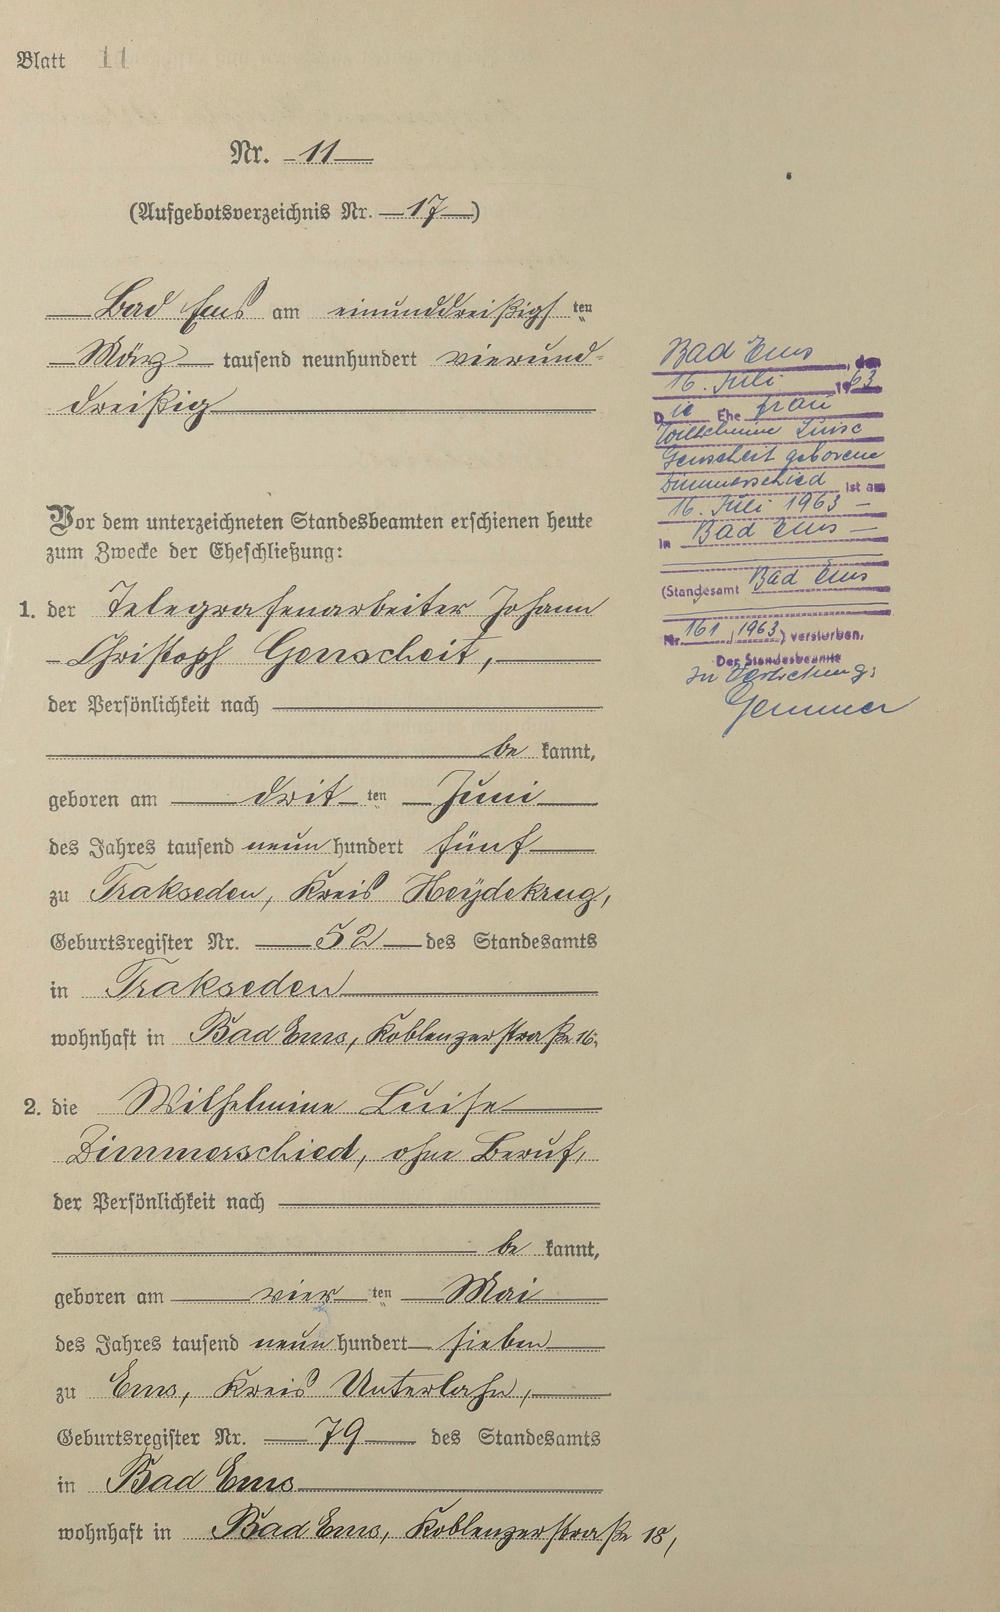 Blatt 11
Nr. 11
(Aufgebotsverzeichnis Nr. 17)
Bad Ems am einunddreißigsten
März tausend neunhundert vierund-
dreißig
Vor dem unterzeichneten Standesbeamten erschienen heute
zum Zwecke der Eheschließung:
1. der Telegrafenarbeiter Johann
Christoph Genscheit,
der Persönlichkeit nach
be kannt,
geboren am dritten Juni
des Jahres tausend neun hundert fünf
zu Trakseden, Kreis Heydekrug,
Geburtsregister Nr. 52 des Standesamts
in Trakseden
wohnhaft in Bad Ems, Koblenzerstraße 16.
2. die Wilhelmine Luise
Zimmerschied, ohne Beruf,
der Persönlichkeit nach
be kannt,
geboren am vierten Mai
des Jahres tausend neun hundert sieben
zu Ems, Kreis Unterlahn,
Geburtsregister Nr. 79 des Standesamts
in Bad Ems
wohnhaft in Bad Ems, Koblenzerstraße 18,
Bad Ems, den
16. Juli 1963
Die Ehefrau
Wilhelmine Luise
Genscheit geborene
Zimmerschied ist am
16. Juli 1963
in Bad Ems
(Standesamt Bad Ems
Nr. 161/1963) verstorben.
Der Standesbeamte
In Vertretung:
Gemmer